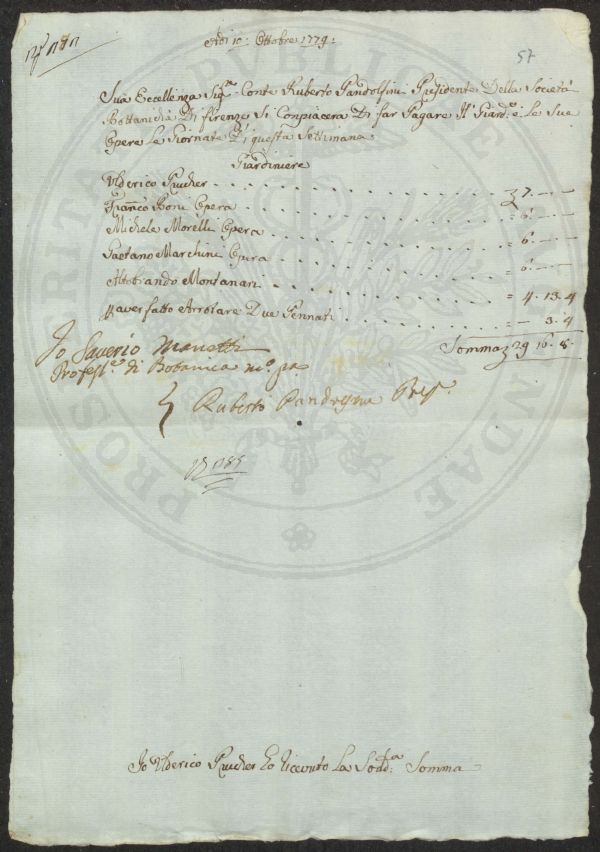 57
Adi 10: Ottobre 1779:
Sua Eccellenza Sig.ra Conte Ruberto Pandolfini Presidente Della Società
Bottanicha Di firenze Si Conpiacera Di far Pagare Il Giard.e e Le Sue
Opere Le Giornate Di questa Settimana
Giardiniere
Ulderico Prucher 7. —
Franco Boni Opera = 6. —
Michele Morelli Opera = 6. —
Gaetano Marchini Opera = 6. —
Altobrando Montanari = 4. 13. 4
P aver fatto Arrotare Due Pennati = — 3. 4
Somma 29 16. 8.
Io Saverio Manetti
Profess.re di Botanica m.o pa
Ruberto Pandolfini Pres.
1785
Io Ulderico Prucher ho Riceuto La Sodd.a Somma
PROSPERITATI PUBLICAE AUGENDAE